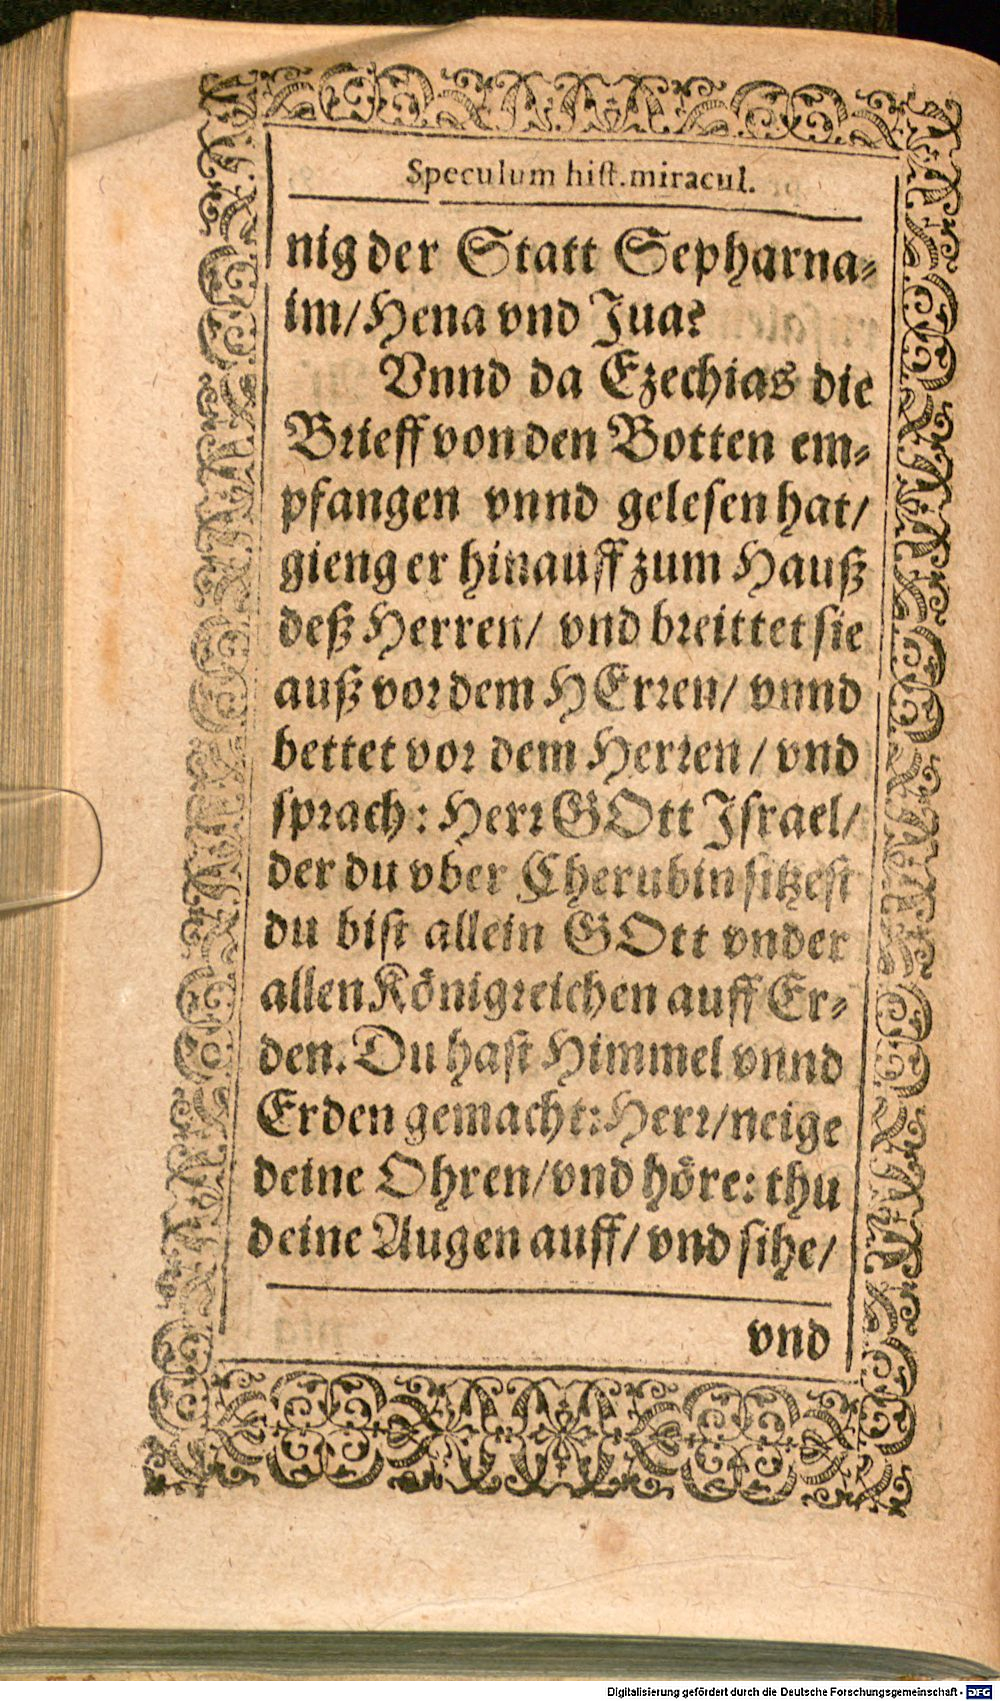 Speculum hist. miracul.
nig der Statt Sepharna-
im/ Hena vnd Jua?
Vnnd da Ezechias die
Brieff von den Botten em-
pfangen vnnd gelesen hat/
gieng er hinauff zum Hauß
deß Herren/ vnd breittet sie
auß vor dem HErren/ vnnd
bettet vor dem Herren/ vnd
sprach: Herr GOtt Jsrael/
der du vber Cherubin sitzest
du bist allein GOtt vnder
allen Königreichen auff Er-
den. Du hast Himmel vnnd
Erden gemacht: Herr/ neige
deine Ohren/ vnd höre: thu
deine Augen auff/ vnd sihe/
vnd
Digitalisierung gefördert durch die Deutsche Forschungsgemeinschaft - DFG